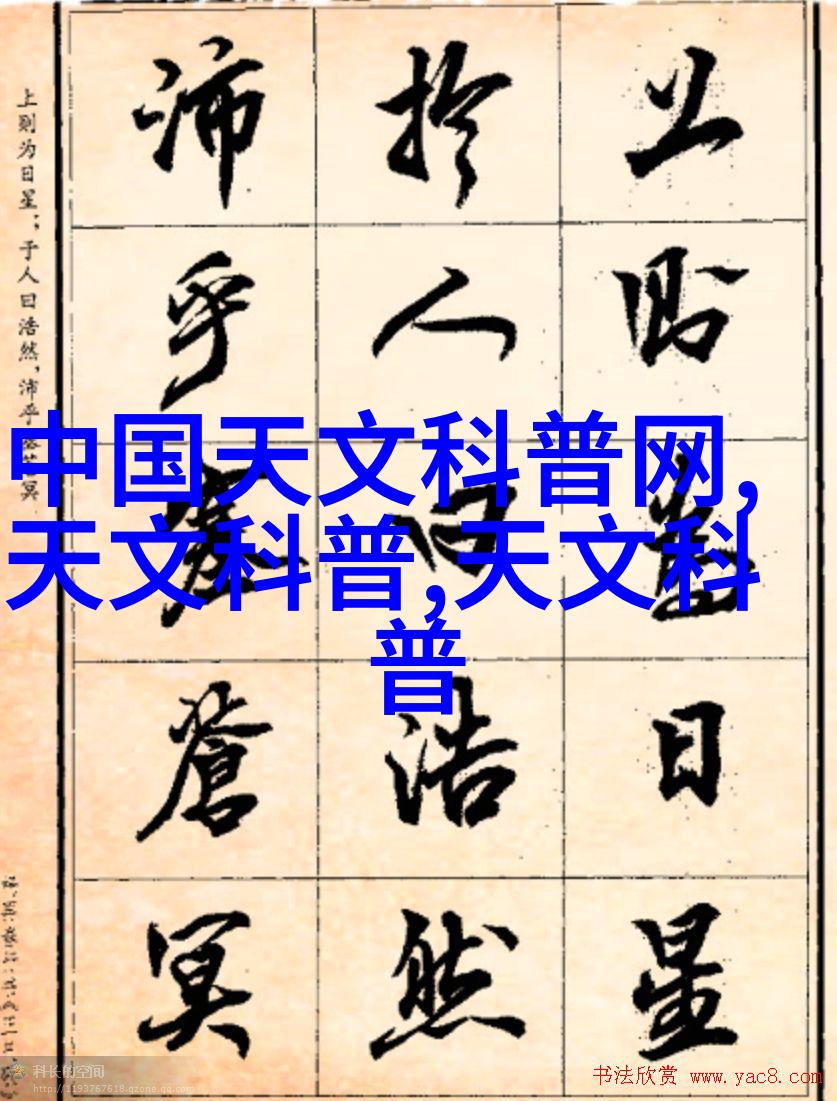 上则为日星；于人曰浩然，沛乎塞苍冥
上则为日星
於人曰浩然
沛乎塞蒼冥
中国天文科普网,
天文科普,天文科
普
科长的空间
http://1193767618.qzone.qq.com
书法欣赏 www.yac8.com